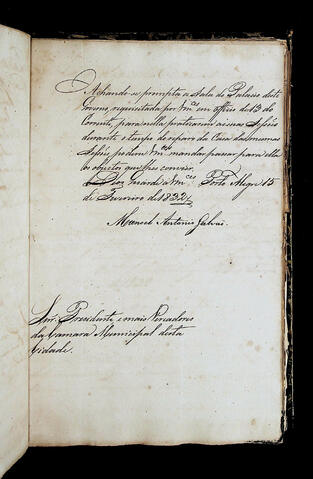 Achando-se prompta a Sala de Palacio deste
Governo, requisitada por Vm.ces em officio de 13 do
Corrente, para nella praticarem as suas Sessões
durante o tempo do reparo da Casa das mesmas
Sessões podem Vm.ces mandar passar para ella
os objectos que lhes convier.
Deos guarde a Vm.ces Porto Alegre 15
de Fevereiro de 1832
Manoel Antonio Galvão
Snr. Presidente e mais Vereadores
da Camara Municipal desta
Cidade.